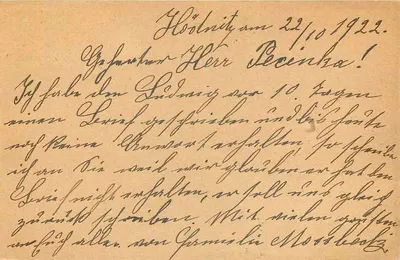 Hödnitz am 22/10 1922.
Geherter Herr Pecinka!
Ich habe den Ludwig vor 10. Tagen
einen Brief geschrieben und bis heute
noch keine Anwort erhalten, so schreibe
ich an Sie weil wir glauben er hat den
Brief nicht erhalten, er soll uns gleich
zurück schreiben. Mit vielen grüßen
an Euch alle. von Familie Mossbeck